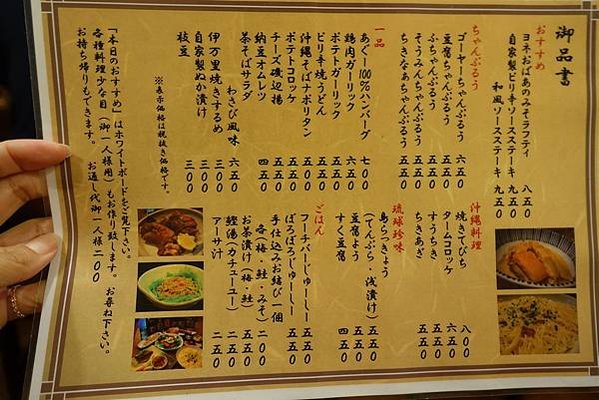 御品書
おすすめ
ヨネおばあのみそラフティ 八五〇
自家製ピリ辛ソースステーキ 九五〇
和風ソースステーキ 九五〇
ちゃんぷるう
ゴーヤーちゃんぷるう 六五〇
豆腐ちゃんぷるう 五五〇
ふちゃんぷるう 五五〇
そうみんちゃんぷるう 五五〇
ちきなぁちゃんぷるう 五五〇
一品
あぐー100%ハンバーグ 七〇〇
鶏肉ガーリック 六五〇
ポテトガーリック 五五〇
ピリ辛焼うどん 五五〇
沖縄そばナポリタン 五五〇
ポテトコロッケ 五五〇
チーズ磯辺揚 五五〇
納豆オムレツ 四五〇
茶そばサラダ
わさび風味 六五〇
伊万里焼きするめ 三〇〇
自家製ぬか漬け 三〇〇
枝豆 三〇〇
※表示価格は税抜き価格です。
沖縄料理
焼きてびち 八〇〇
タームコロッケ 六五〇
すうちき 五五〇
ちきあぎ 五五〇
琉球珍味
島らっきょう
(てんぷら・浅漬け) 五五〇
豆腐よう 五五〇
すく豆腐 四五〇
ごはん
フーチバーじゅーしー 五五〇
ぼろぼろじゅーしー 五五〇
手仕込みお結び一個
各梅・鮭・みそ 二〇〇
お茶漬け(梅・鮭) 五五〇
鰹湯(カチューユー) 二五〇
アーサ汁 二五〇
「本日のおすすめ」はホワイトボードをご覧下さい。
各種料理少な目(御一人様用)もお作り致します。お尋ね下さい。
お持ち帰りもできます。 お通し代御一人様二〇〇